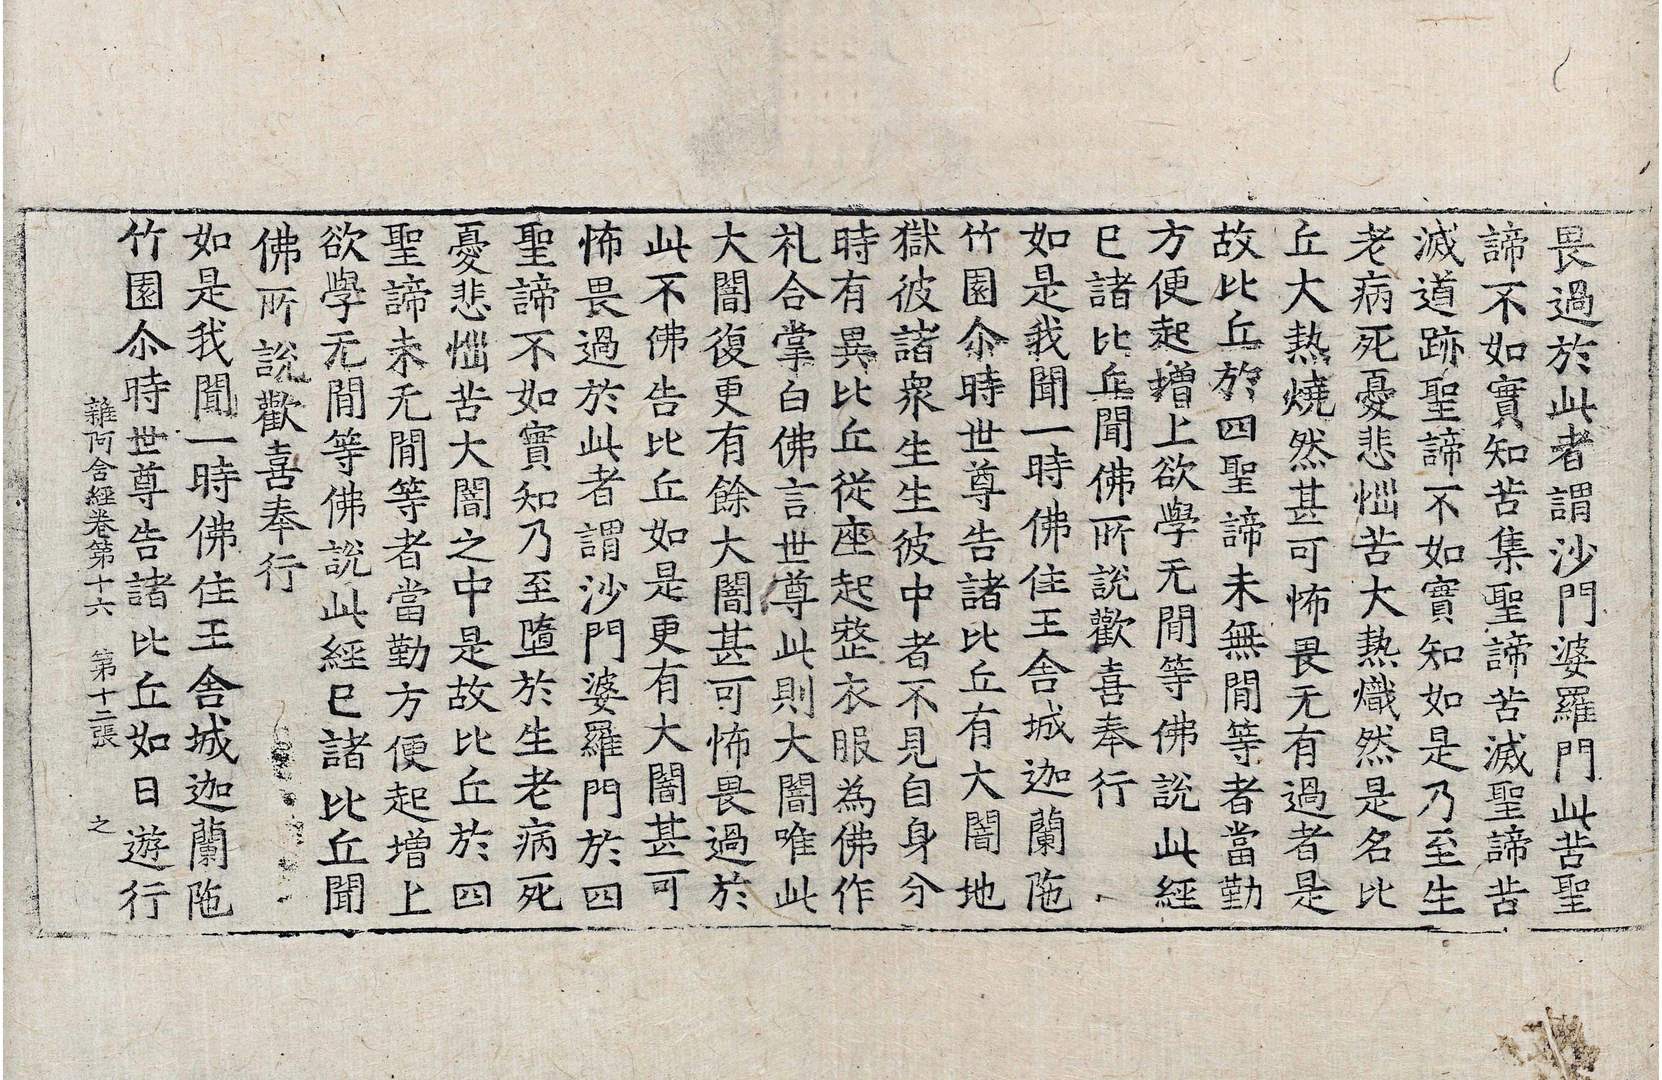 畏過於此者謂沙門婆羅門此苦聖
諦不如實知苦集聖諦苦滅聖諦苦
滅道跡聖諦不如實知如是乃至生
老病死憂悲惱苦大熱熾然是名比
丘大熱燒然甚可怖畏无有過者是
故比丘於四聖諦未無閒等者當勤
方便起增上欲學无閒等佛說此經
已諸比丘聞佛所說歡喜奉行
如是我聞一時佛住王舍城迦蘭陁
竹園尒時世尊告諸比丘有大闇地
獄彼諸衆生生彼中者不見自身分
時有異比丘從座起整衣服為佛作
礼合掌白佛言世尊此則大闇唯此
大闇復更有餘大闇甚可怖畏過於
此不佛告比丘如是更有大闇甚可
怖畏過於此者謂沙門婆羅門於四
聖諦不如實知乃至墮於生老病死
憂悲惱苦大闇之中是故比丘於四
聖諦未无閒等者當勤方便起增上
欲學无閒等佛說此經已諸比丘聞
佛所說歡喜奉行
如是我聞一時佛住王舍城迦蘭陁
竹園尒時世尊告諸比丘如日遊行
雜阿含經卷第十六 第十二張 之